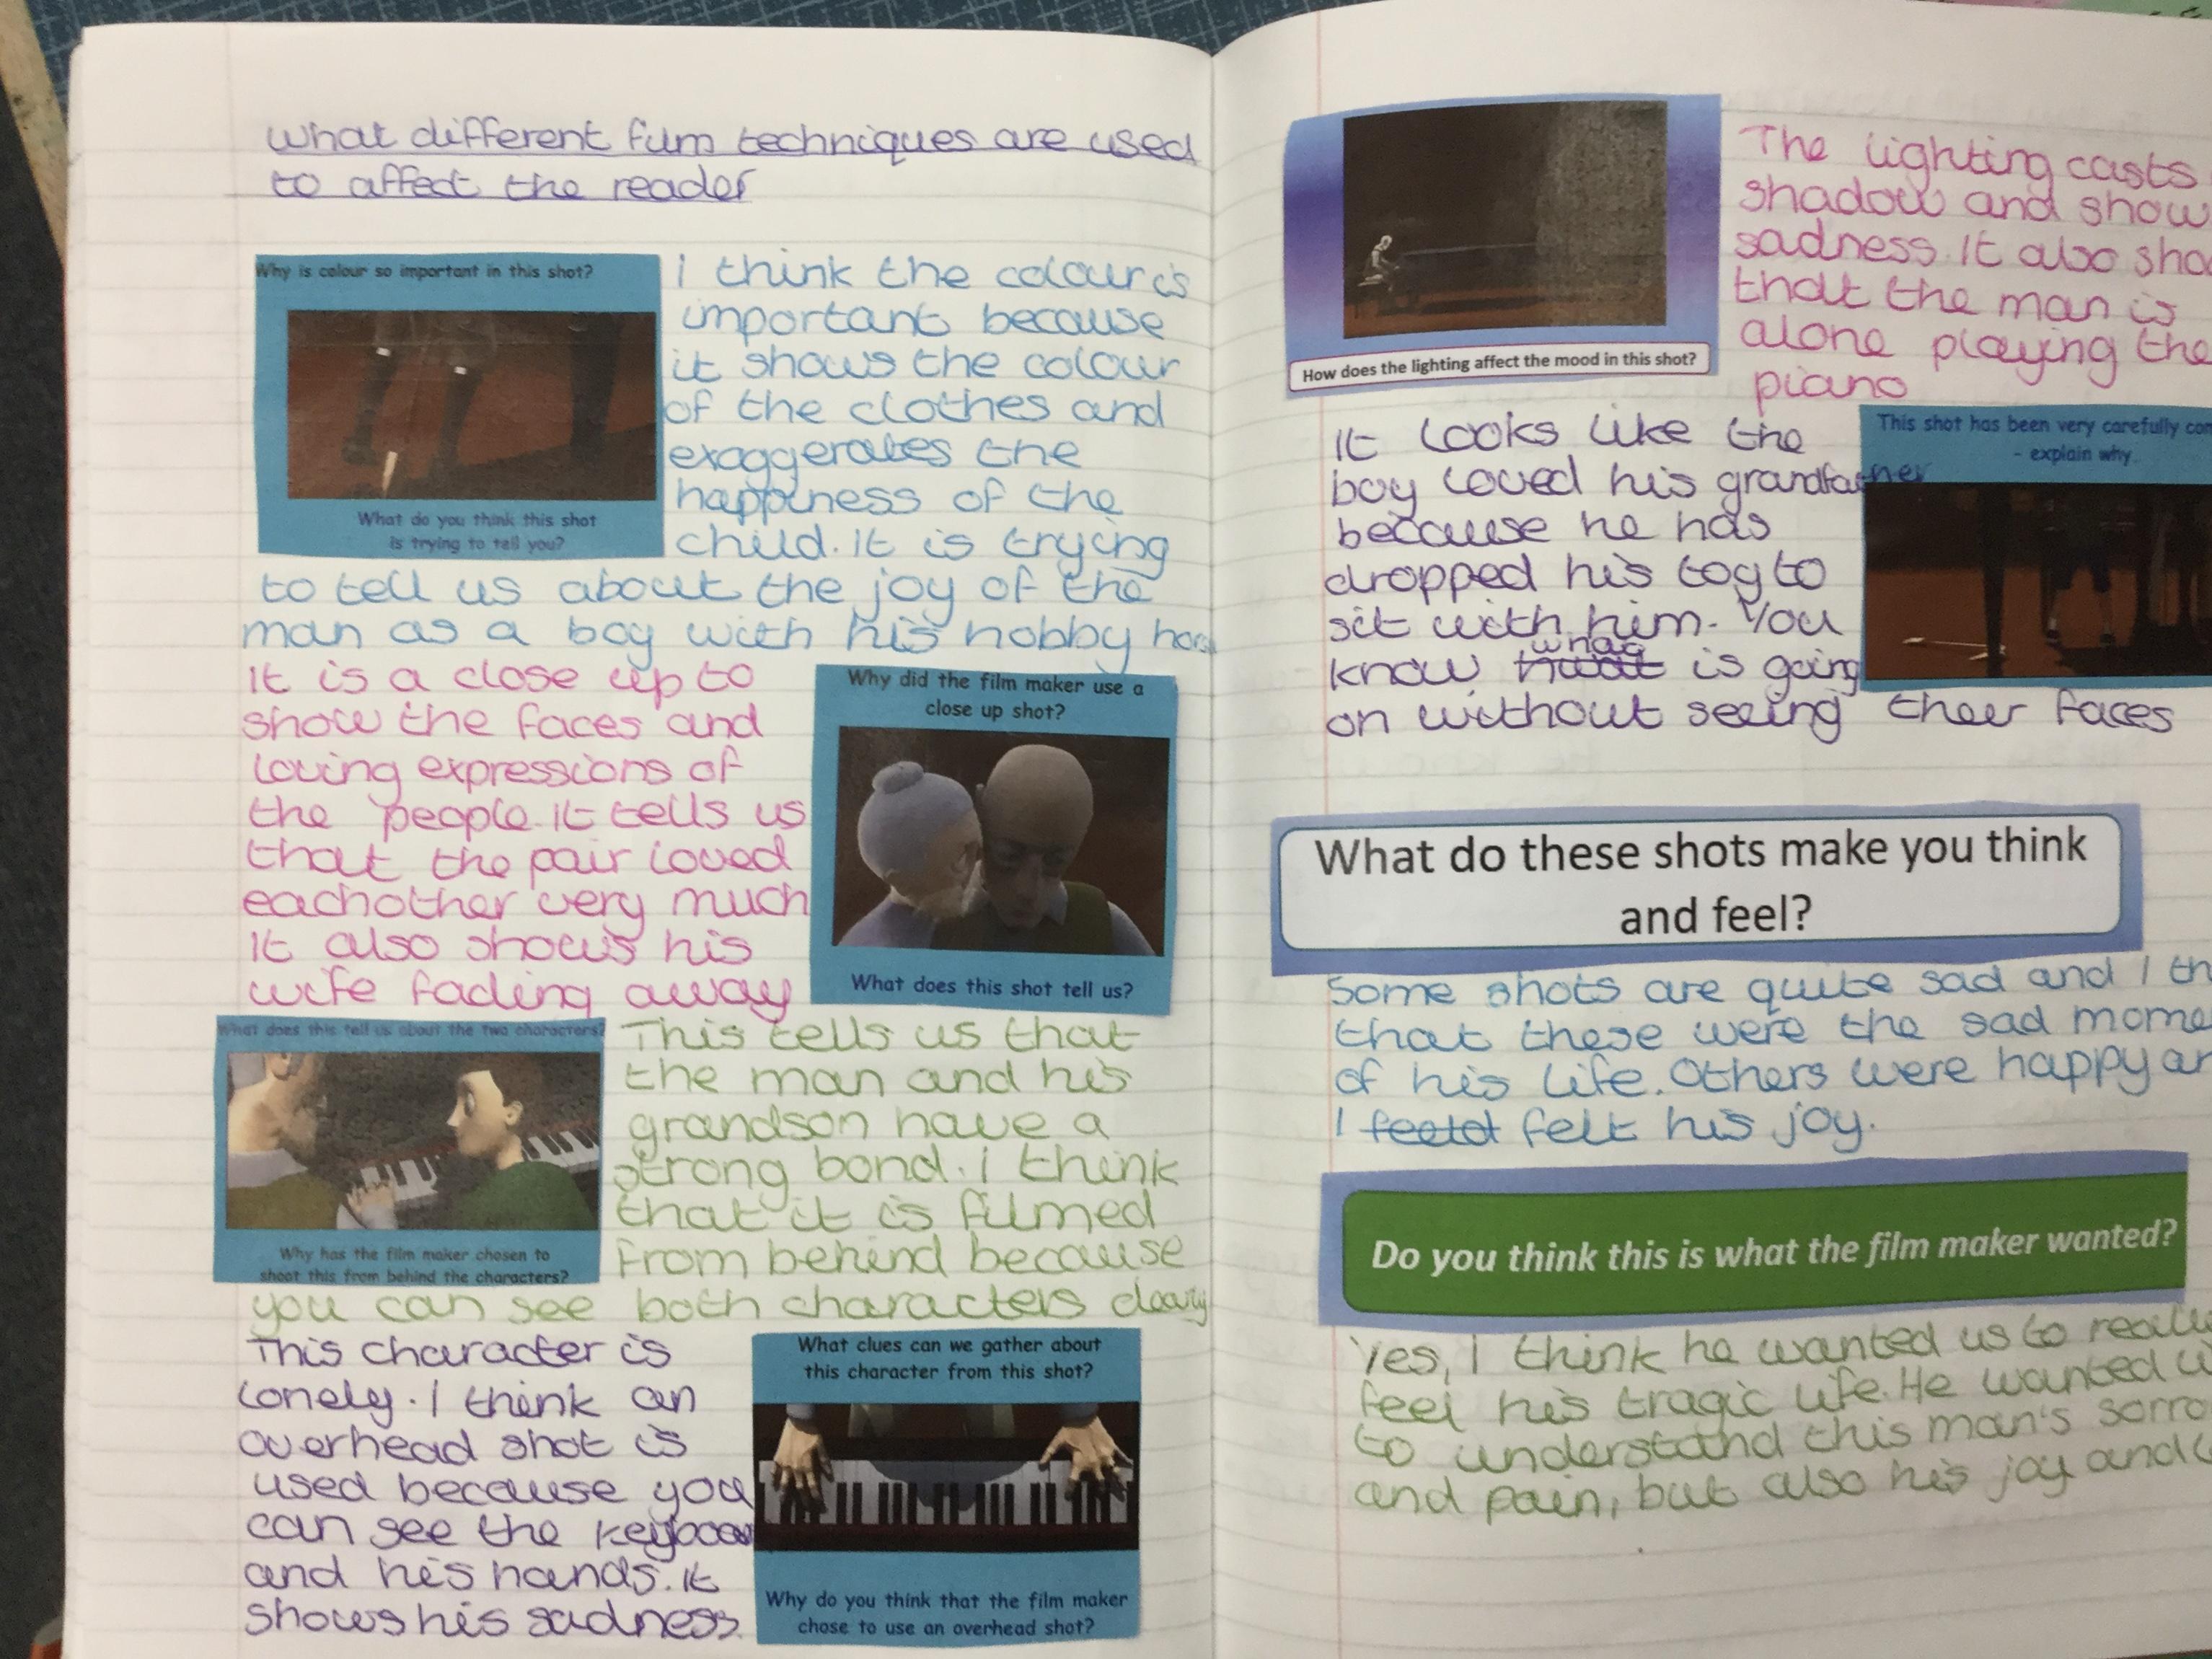 What different film techniques are used
to affect the reader
Why is colour so important in this shot?
What do you think this shot
is trying to tell you?
I think the colour is
important because
it shows the colour
of the clothes and
exaggerates the
happiness of the
child. It is trying
to tell us about the joy of the
man as a boy with his hobby
It is a close up to
show the faces and
loving expressions of
the people. It tells us
that the pair loved
eachother very much
It also shows his
wife fading away
Why did the film maker use a
close up shot?
What does this shot tell us?
What does this tell us about the two characters?
Why has the film maker chosen to
shoot this from behind the characters?
This tells us that
the man and his
grandson have a
strong bond. I think
that it is filmed
from behind because
you can see both characters clearly
This character is
lonely. I think an
overhead shot is
used because you
can see the
and his hands. It
shows his sadness.
What clues can we gather about
this character from this shot?
Why do you think that the film maker
chose to use an overhead shot?
How does the lighting affect the mood in this shot?
The lighting casts
shadow and show
sadness. It also
that the man is
alone playing the
piano
It looks like the
boy loved his grandfather
because he has
dropped his toy to
sit with him. You
know what is going
on without seeing their faces
This shot has been very carefully
- explain why.
What do these shots make you think
and feel?
Some shots are quite sad and I
that these were the sad
of his life. Others were happy
I felt his joy.
Do you think this is what the film maker wanted?
Yes, I think he wanted us to
feel his tragic life. He wanted
to understand this man's
and pain, but also his joy and